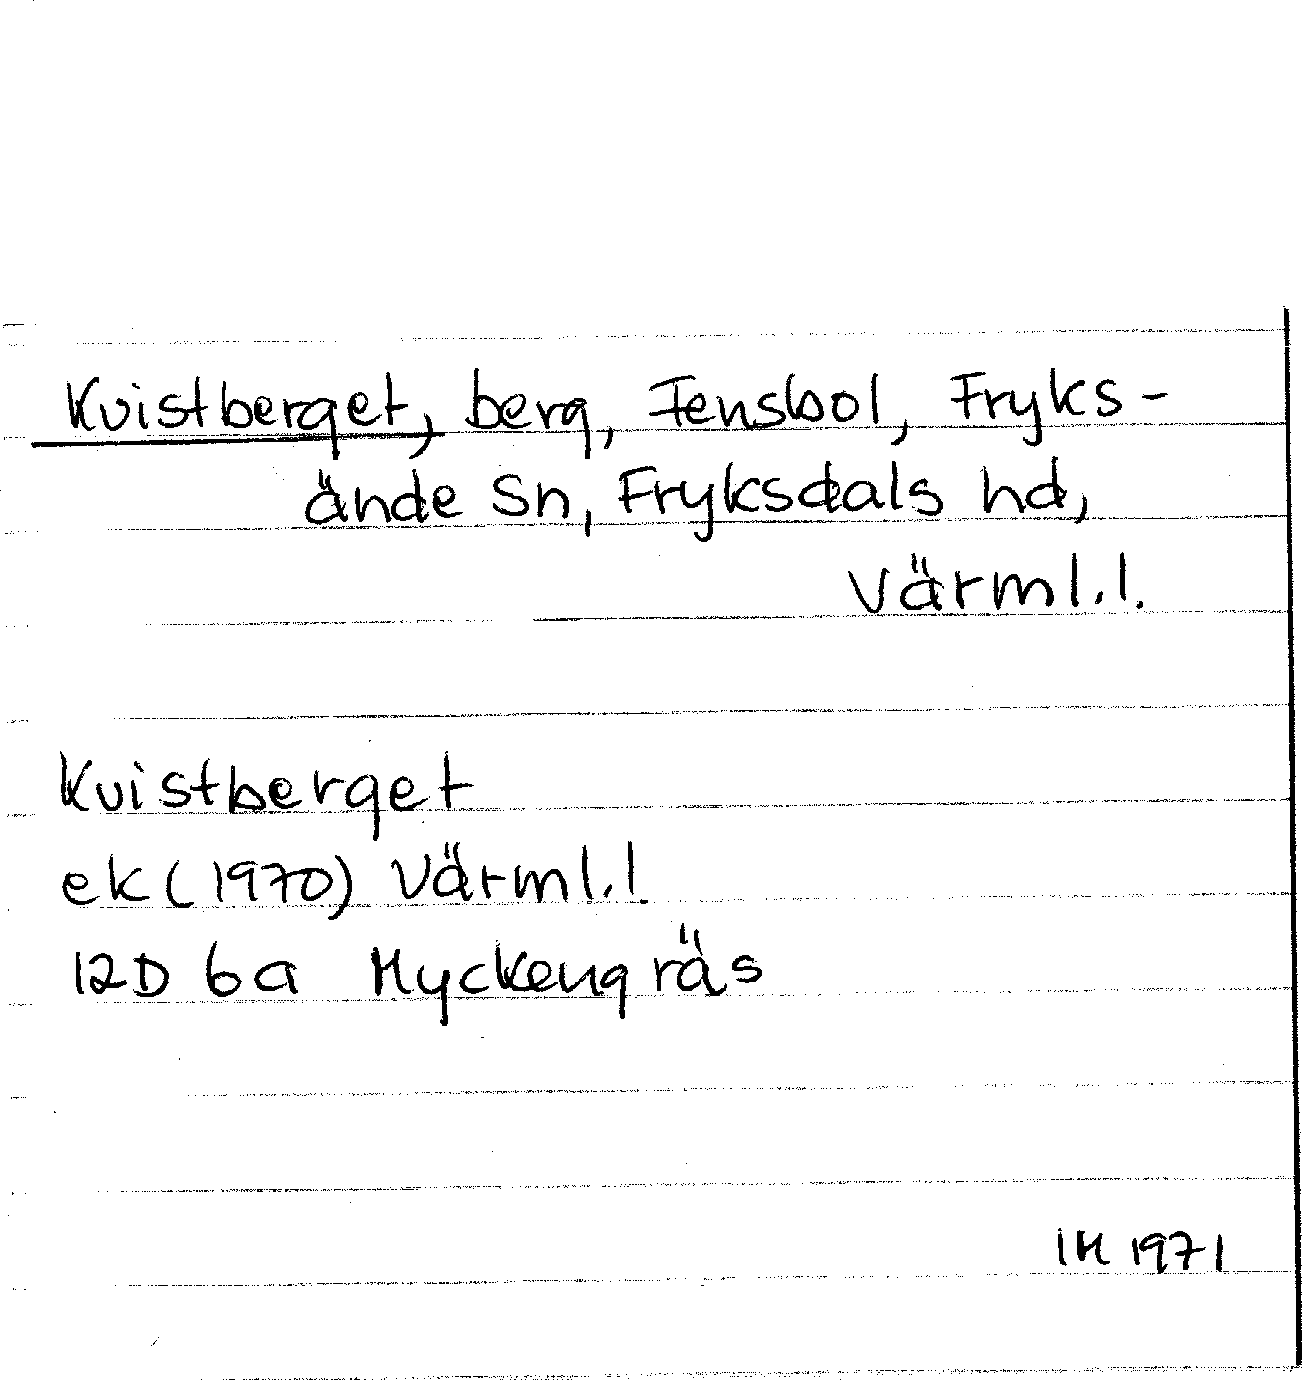 Kvistberget, berg, Fensbol, Fryks-
ände Sn, Fryksdals hd,
Värml.l.
Kvistberget
ek (1970) Värml.l.
12D 6a Myckengräs
IM 1971